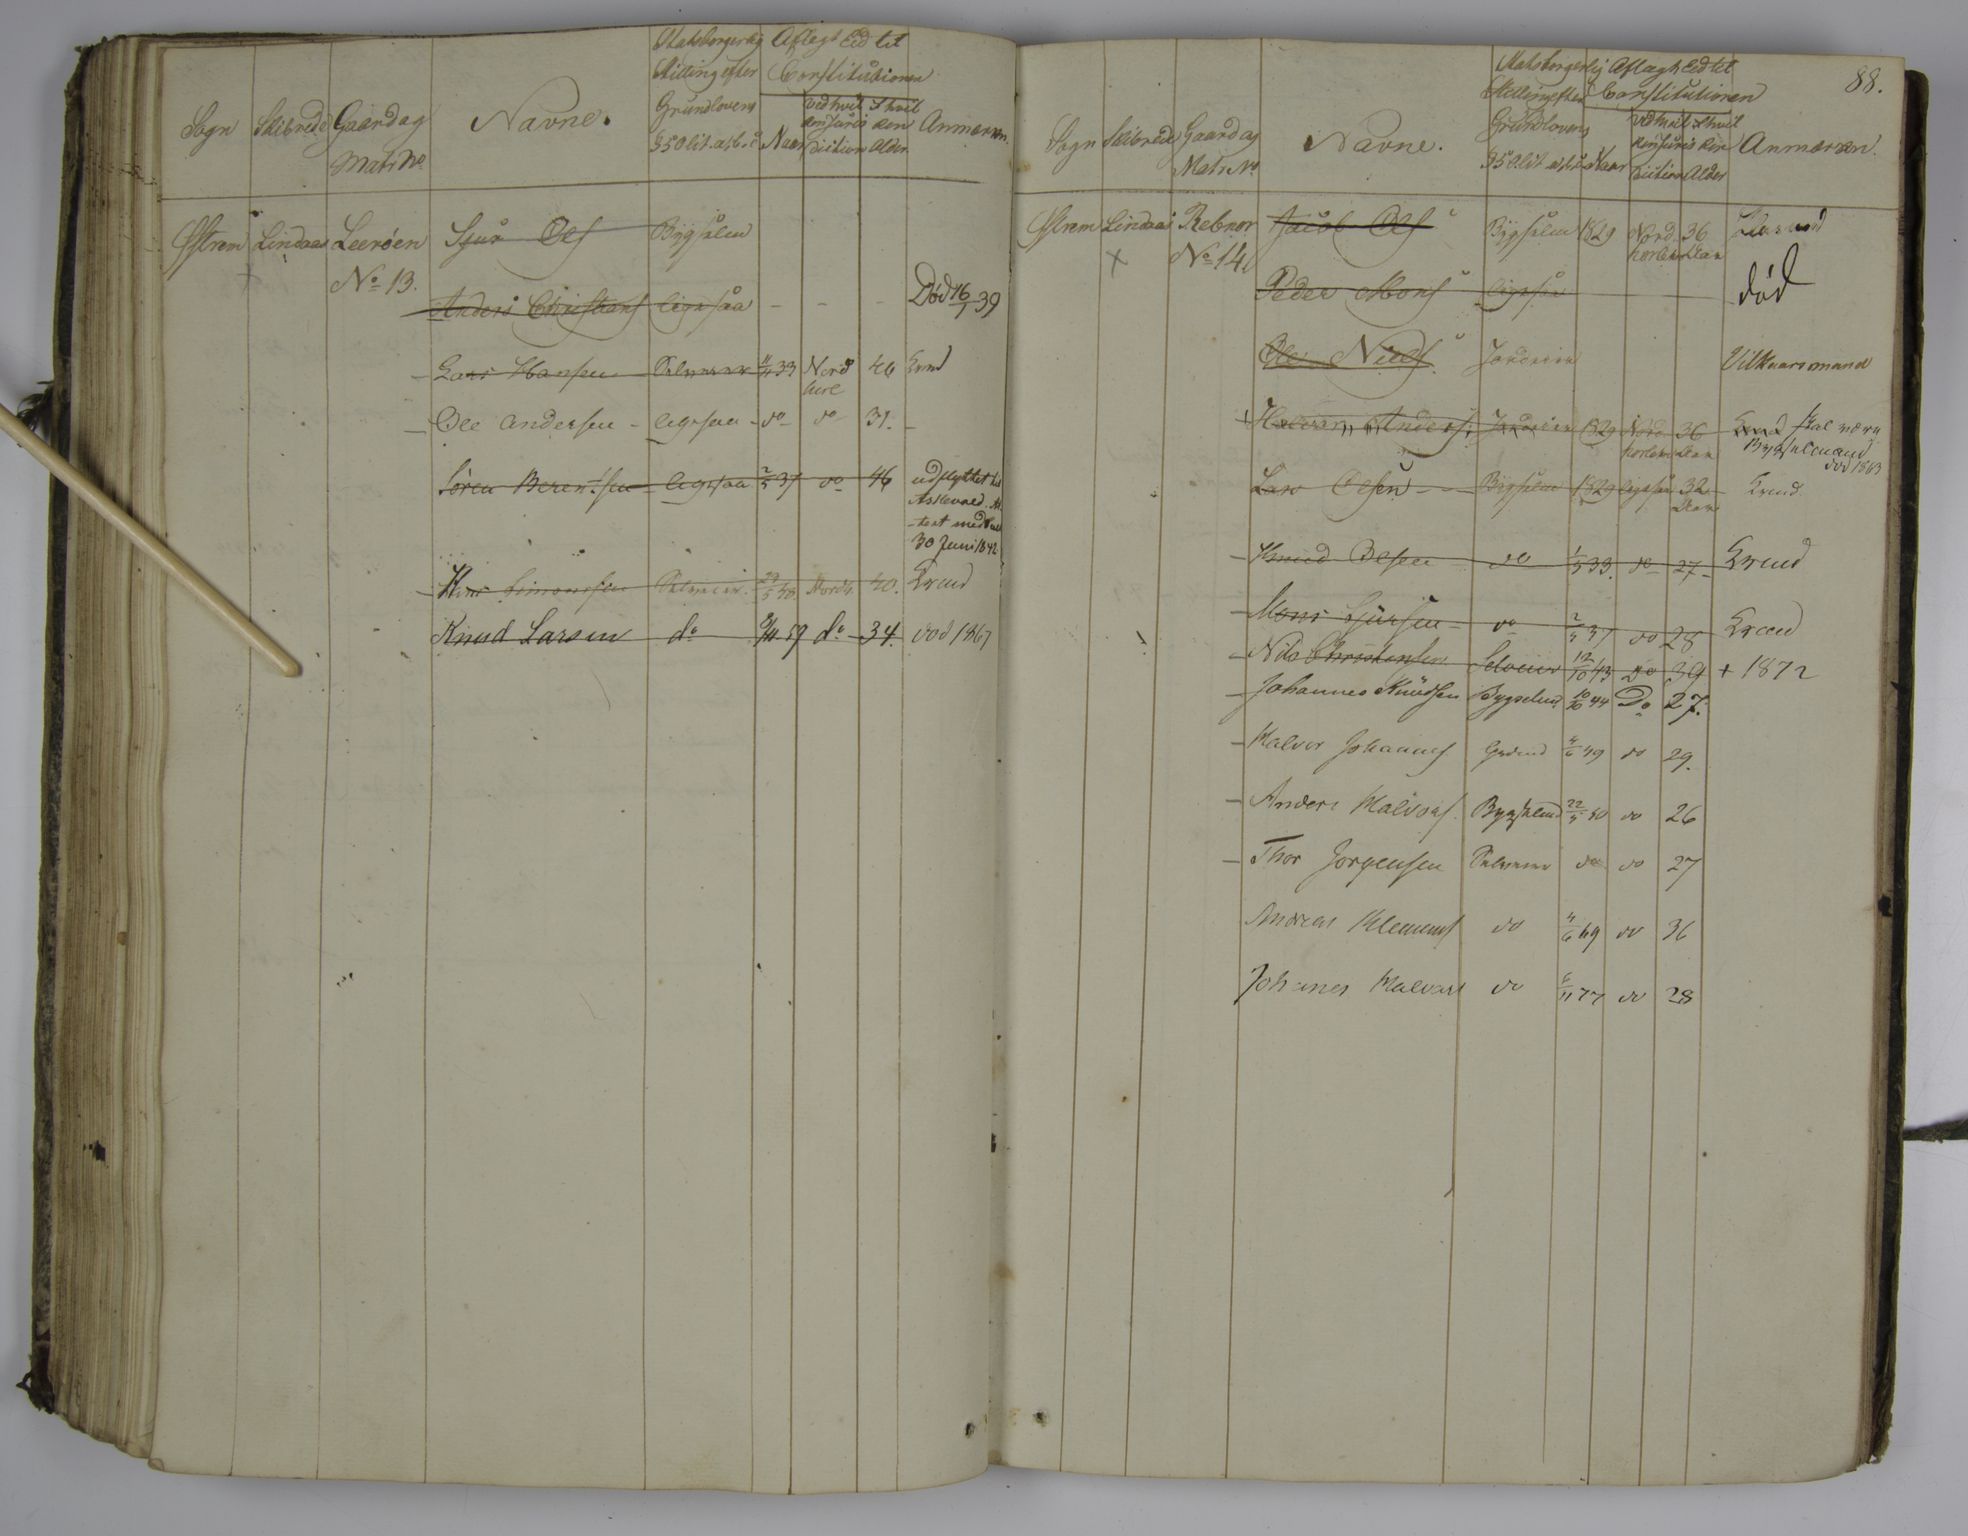 Sogn Skibrede Gaard og Matr No Navne. Statsborgerlig Stilling efter Grundlovens § 50 lit. a, b, c Aflagt Eed til Constitutionen Naar Ved hvilken Jurisdiction I hvilken Alder Anmærkn.
Østrem Lindaas Leerøen Sjur Ols Bygselm
No 13.
Anders Christians ligesaa - - - Død 16/1 39
Lars Hansen Selveier 11/11 33 Nord 46
- Ole Andersen - ligesaa - do do 31. -
Søren Berentsen ligesaa 2/5 37 do 46 udflyttet til
Askevold. At-
-test med
30 Juni 1842
- Simonsen Selveier. 40. Nordh. 40.
Knud Larsen do 8/11 59 do 34. død 1867
88.
Sogn Skibrede Gaard og Matr No Navne. Statsborgerlig Stilling efter Grundlovens § 50 lit a, b, c Aflagt Eed til Constitutionen Naar Ved hvilken Jurisdiction I hvilken Alder Anmærkn.
Østrem Lindaas Rebnor Jacob Ols Bygselm 1829 Nord- 36
No 14. horlehn Aar
Peder Mons ligesaa død
Ole Niels Jordeier Vilkaarsmand
Anders Jordeier 1829 Nord- 36 skal være
horlehn Aar Bygselmand
død 1863
Lars Olsen - Bygselm 1829 ligesaa 32
Aar
- Knud Olsen do 1/5 33. do 27 -
- Mons Sjursen - do 2/5 37 do 28
- Nils Christensen Selveier 12/10 43 Do 39 + 1872
- Johannes Knudsen Bygselm 10/10 44 Do 27.
- Halvor Johannes 4/6 49 do 29.
- Anders Halvors. Bygselmd 22/5 50 do 26
- Thor Jørgensen Selveier do do 27
Andreas Klemens do 4/6 69 do 36
Johanes Halvors do 6/11 77 do 28